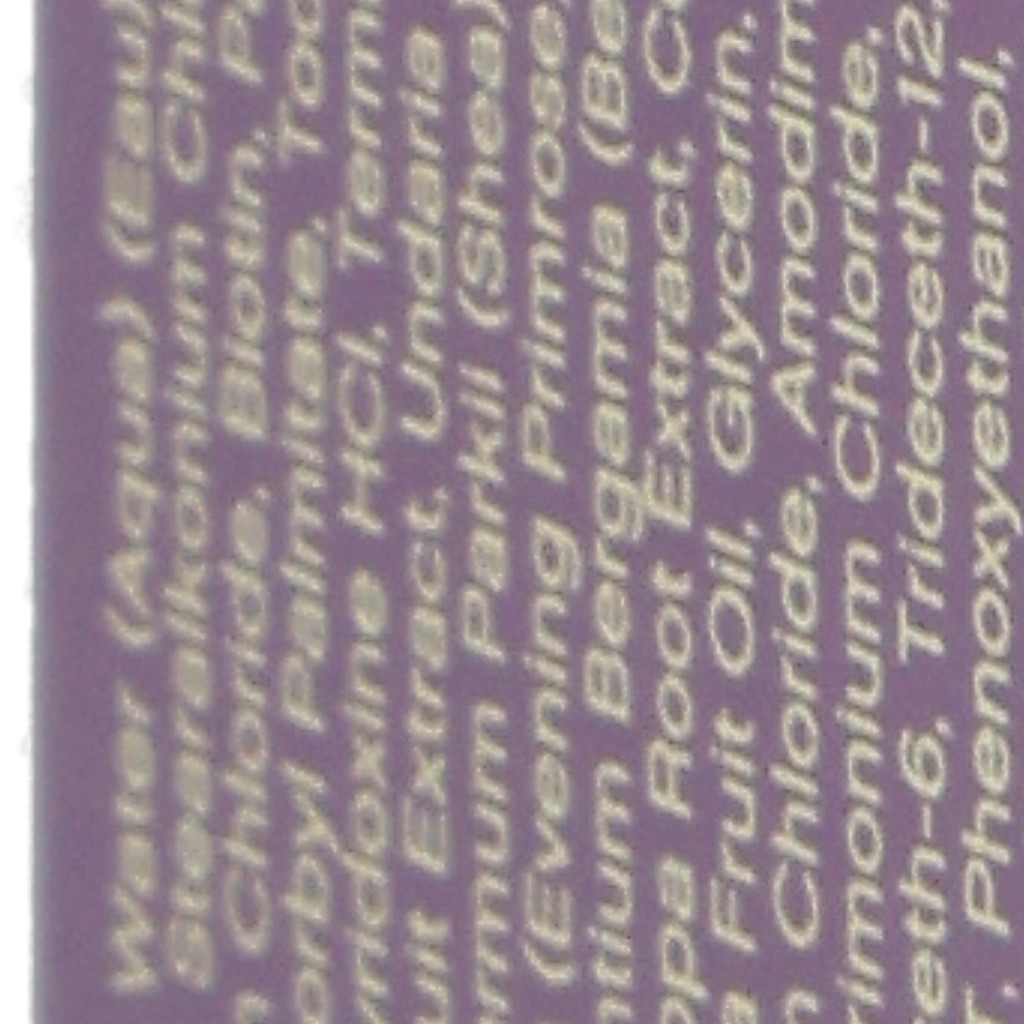 Water (Aqua) (Eau)
Stearalkonium Chl
Chloride, Biotin, P
orbyl Palmitate, Toc
ridoxine HCl, Term
uit Extract, Undaria
rmum Parkii (Shea)
(Evening Primrose)
ntium Bergamia (Be
ppa Root Extract, C
a Fruit Oil, Glycerin,
n Chloride, Amodim
rimonium Chloride,
reth-6, Trideceth-12,
T, Phenoxyethanol,